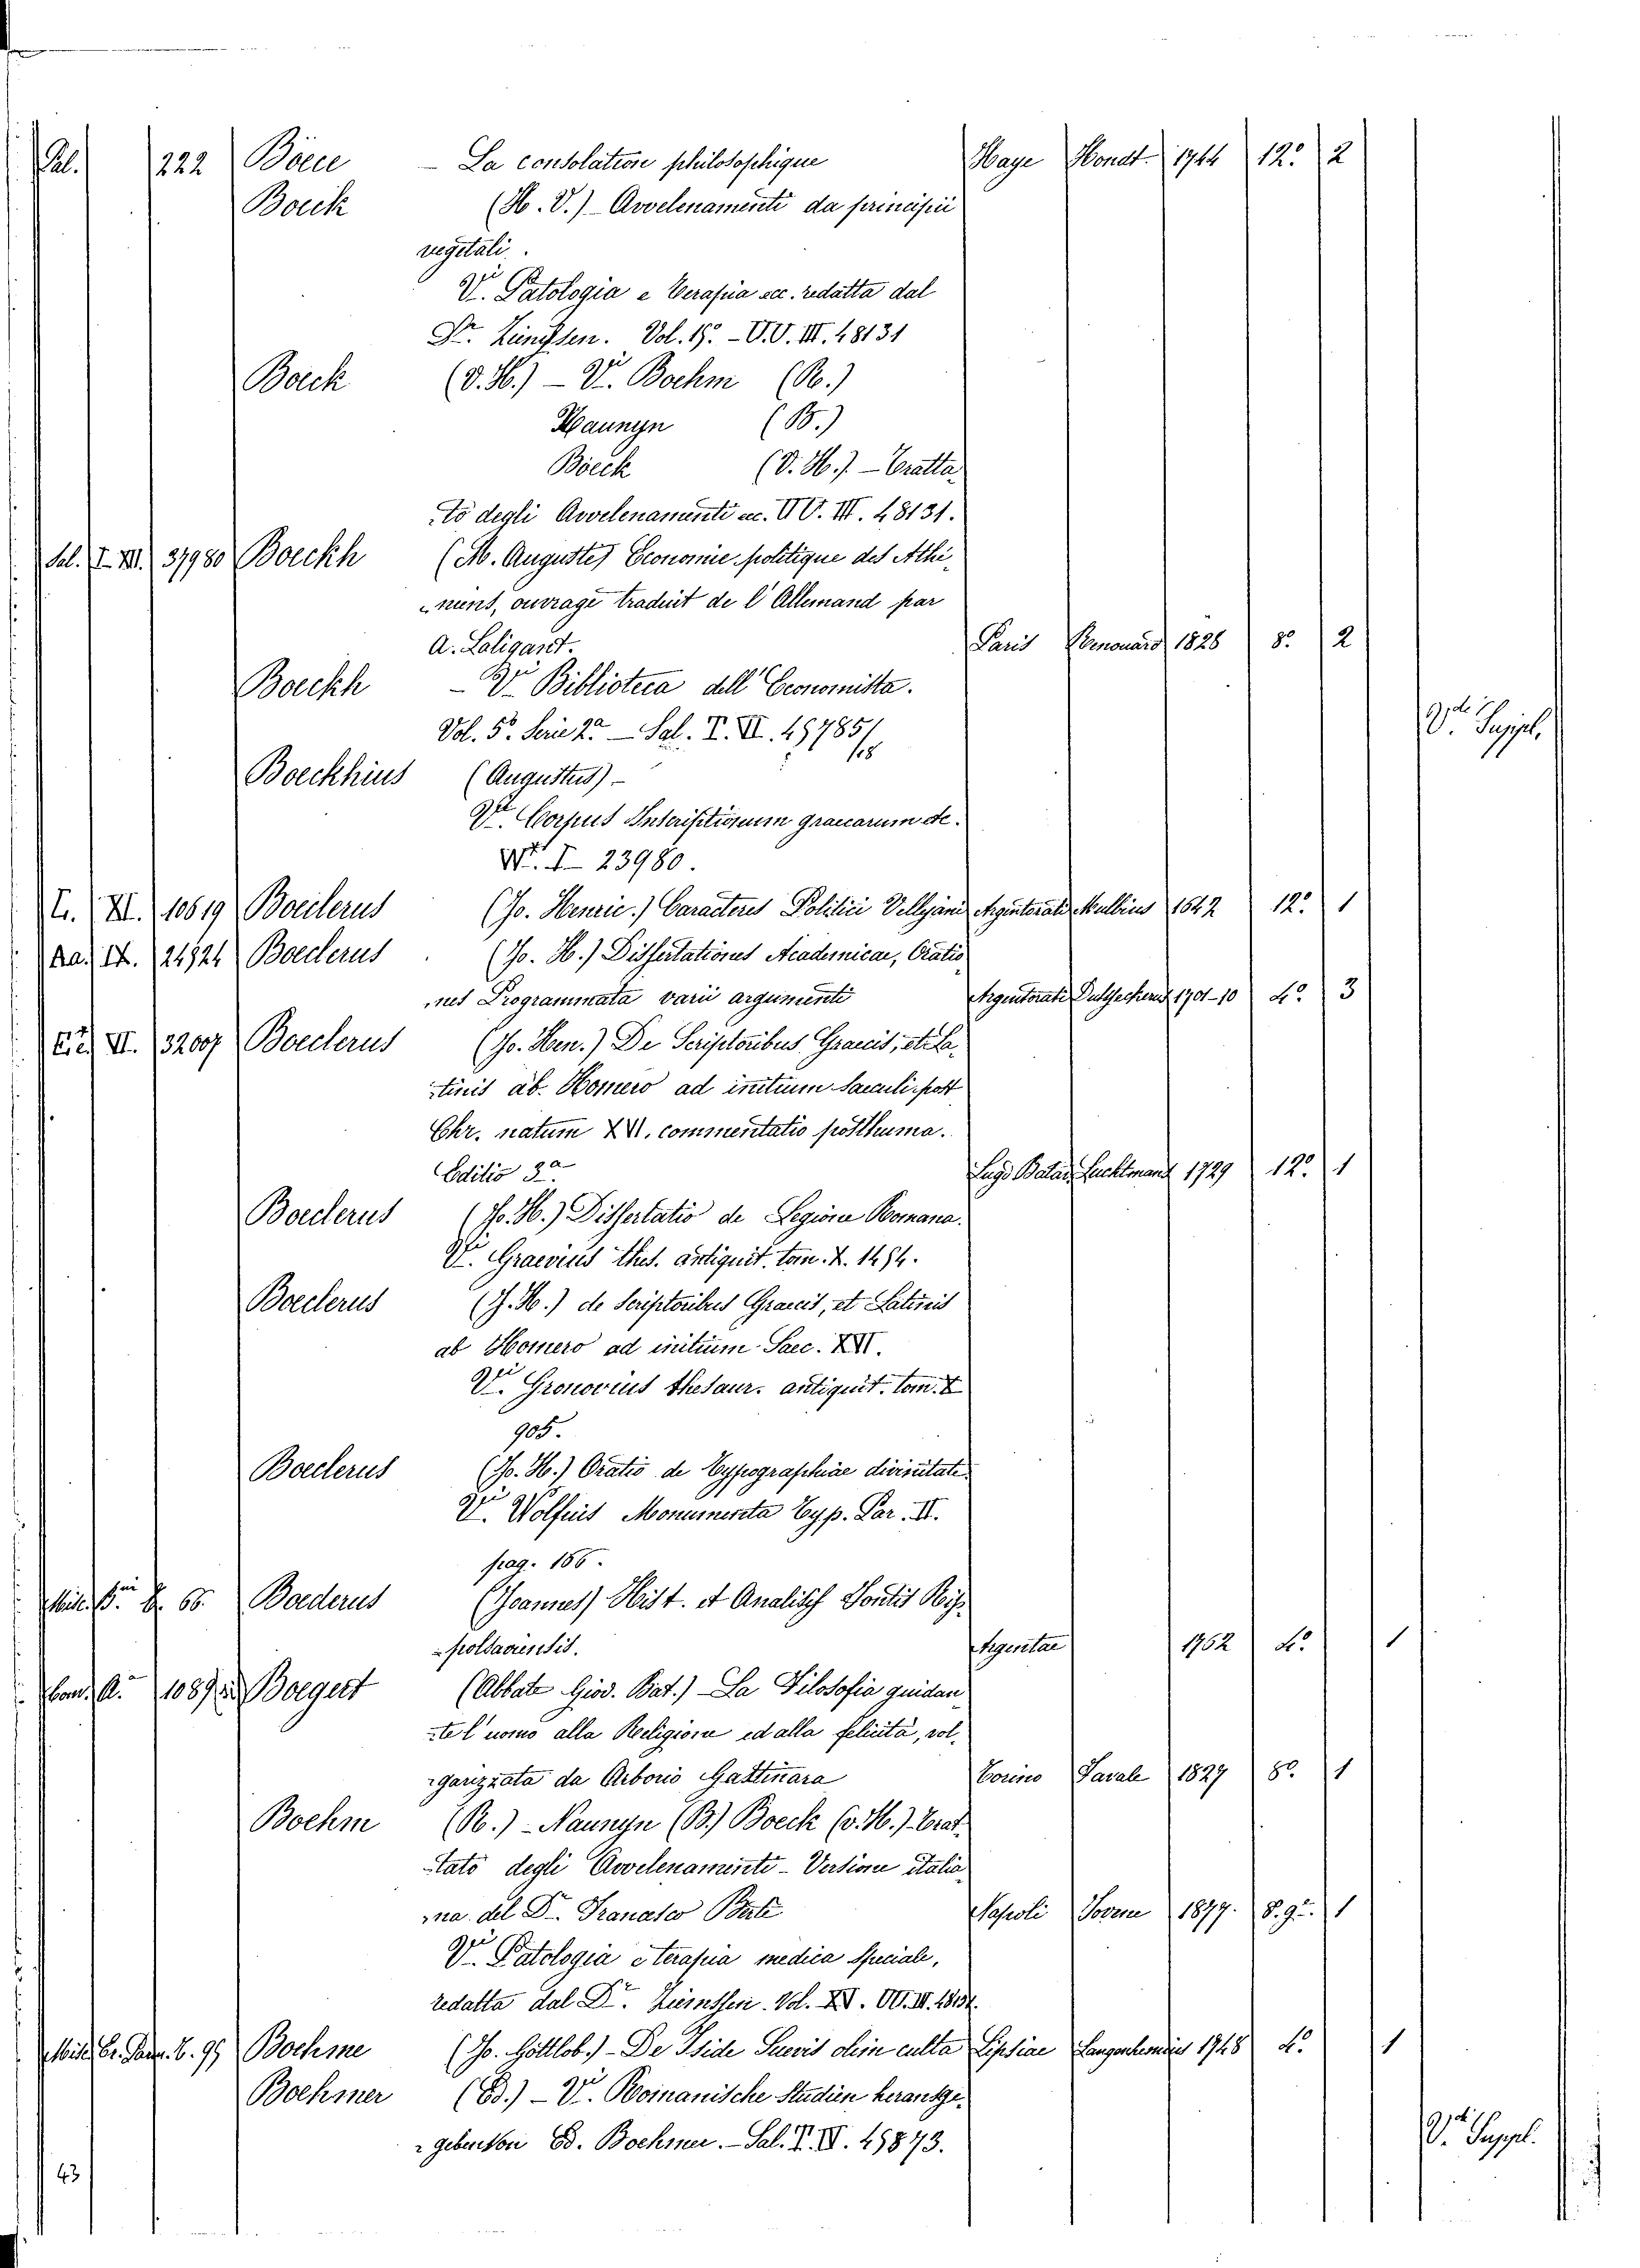 Pal. 222 Böece - La consolation philosophique Haye Hondt 1744 12º 2
Boeck (H. V.) - Avvelenamenti da principii
vegetali.
Vi. Patologia e Terapia ecc. redatta dal
Dr. Vol. 15º - VV. III. 48131
Boeck (V. H.) - Vi. Boehm (R.)
Naunyn (B.)
Böeck (V. H.) - Tratta
to degli Avvelenamenti ec. VV. III. 48131.
Sal. T. VI. 37980 Boeckh (M. Auguste) Economie politique des Athé
niens, ouvrage traduit de l'Allemand par
A. Laligant. Paris Renouard 1828 8º 2
Boeckh - Vi Biblioteca dell'Economista.
Vol. 5º Serie 2ª - Sal. T. VI. 45785/18 Vde Suppl.
Boeckhius (Augustus) -
Vi. Corpus Inscriptionum graecarum etc.
W. I - 23980.
L. XI. 10619 Boeclerus (Jo. Henric.) Caracteres Politici Vellejani Argentorati Mulbius 1642 12º 1
Aa. IX. 24324 Boeclerus (Jo. H.) Dissertationes Academicae, Oratio
nes Programmata varii argumenti Argentorati Dulsseckerus 1701-10 4º 3
VI. 32007 Boeclerus (Jo. Hen.) De Scriptoribus Graecis, et La
tinis ab Homero ad initium saeculi post
Chr. natum XVI. commentatio posthuma.
Editio 3ª. Lugd. Batav. Luchtmans 1729 12º 1
Boeclerus (Jo. H.) Dissertatio de Legione Romana.
Vi. Graevius thes. antiquit. tom. X. 1494.
Boeclerus (J. H.) de Scriptoribus Graecis, et Latinis
ab Homero ad initium Saec. XVI.
Vi. Gronovius thesaur. antiquit. tom. X
905.
Boeclerus (Jo. H.) Oratio de Typographiae divinitate
Vi. Wolfius Monumenta Typ. Par. II.
pag. 166.
Misc. B. 66. Boederus (Joannes) Hist. et Analisis Fontis Rip
poldsaviensis. Argentae 1762 4º 1
Com. A. 1089 Boegert (Abbate Giov. Bat.) - La Filosofia guidan
te l'uomo alla Religione ed alla felicità, vol
garizzata da Arborio Gattinara Torino Favale 1827 8º 1
Boehm (R.) - Naunyn (B.) Boeck (v. H.) - Trat
tato degli Avvelenamenti - Versione italia
na del Dr. Francesco Betti Napoli Jovene 1877. 8.gr. 1
Vi. Patologia e terapia medica speciale,
redatta dal Dr. Ziemssen. Vol. XV. VV. III. 48131.
Misc. Er. Parm. 6. 95 Boehme (Jo. Gottlob.) - De Iside Suevis olim culta Lipsiae Langenhemius 1748 4º 1
Boehmer (Ed.) - Vi. Romanische Studien herausge
geben von Ed. Boehmer. - Sal. T. VI. 45873. Vde Suppl.
43